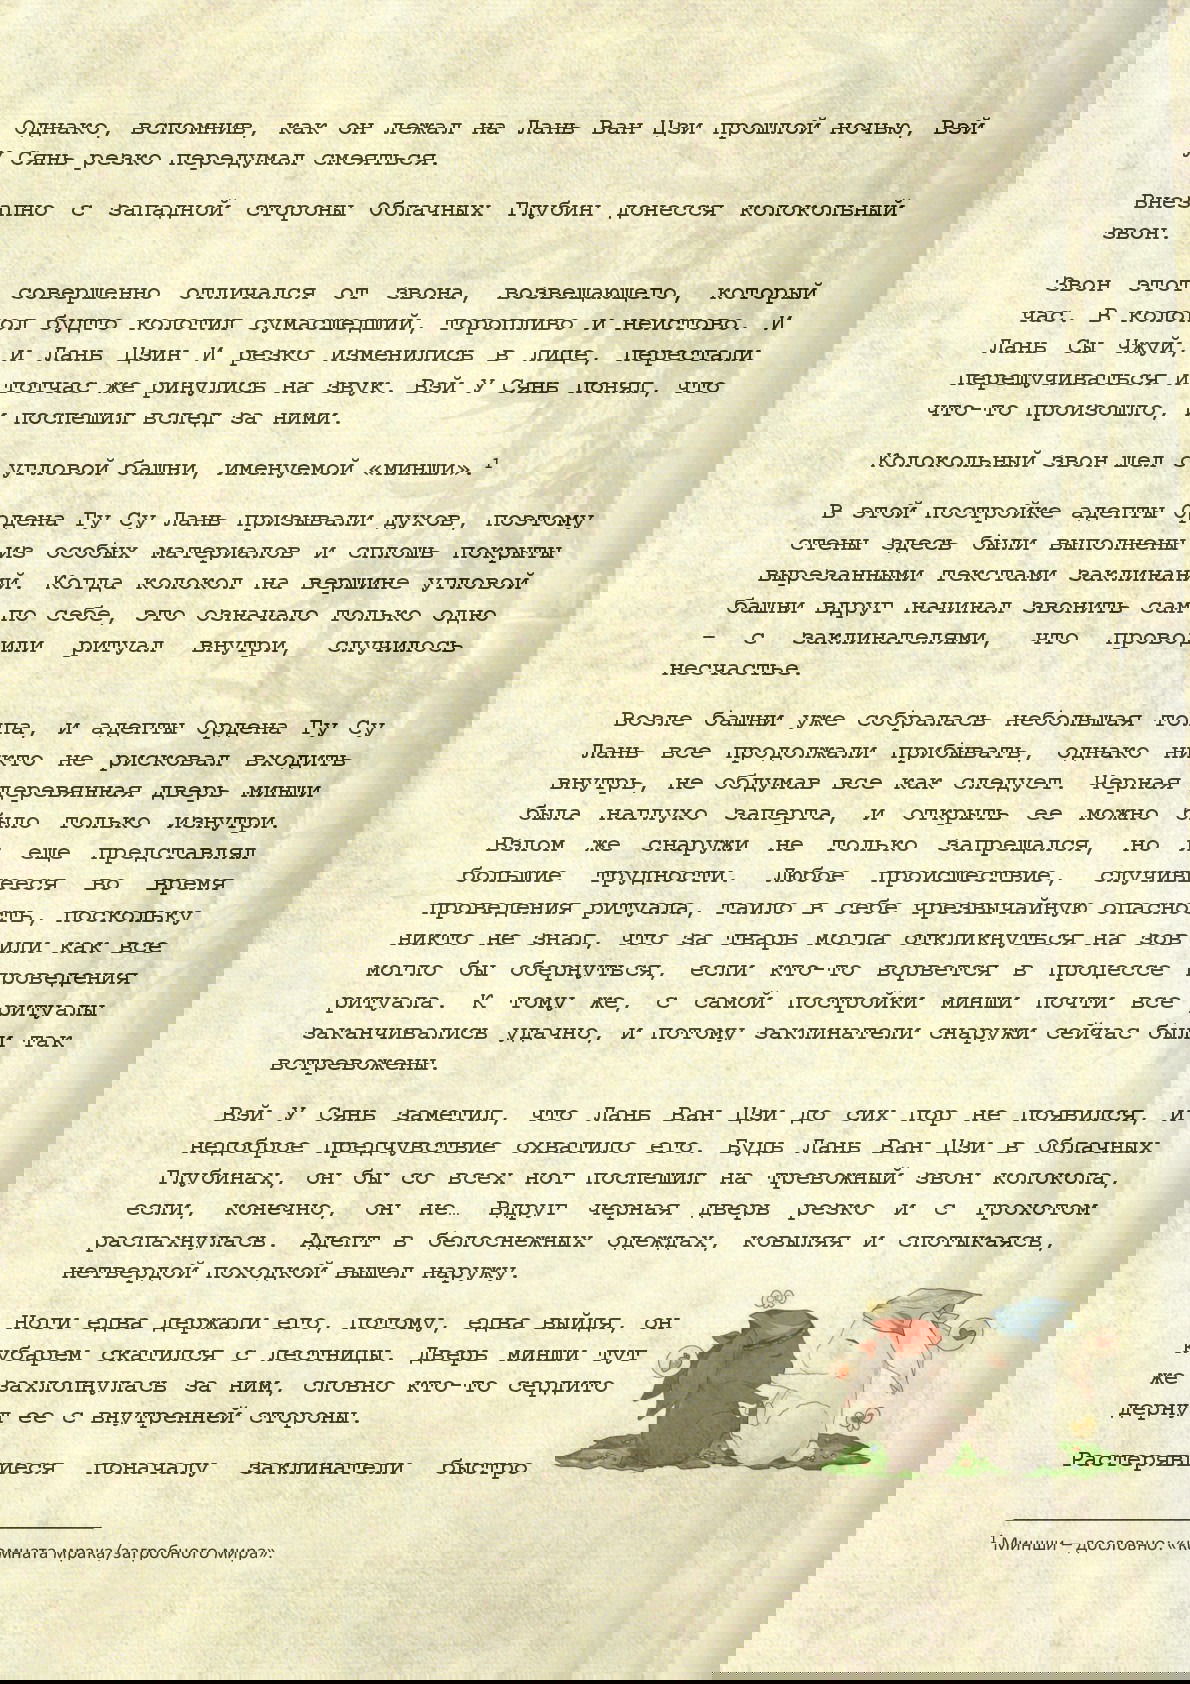 Однако, вспомнив, как он лежал на Лань Ван Цзи прошлой ночью, Вэй
У Сянь резко передумал смеяться.
Внезапно с западной стороны Облачных Глубин донесся колокольный
звон.
Звон этот совершенно отличался от звона, возвещающего, который
час. В колокол будто колотил сумасшедший, торопливо и неистово. И
Лань Сы Чжуй, и Лань Цзин И резко изменились в лице, перестали
перешучиваться и тотчас же ринулись на звук. Вэй У Сянь понял, что
что-то произошло, и поспешил вслед за ними.
Колокольный звон шел с угловой башни, именуемой «минши». 1
В этой постройке адепты Ордена Гу Су Лань призывали духов, поэтому
стены здесь были выполнены из особых материалов и сплошь покрыты
вырезанными текстами заклинаний. Когда колокол на вершине угловой
башни вдруг начинал звонить сам по себе, это означало только одно
– с заклинателями, что проводили ритуал внутри, случилось
несчастье.
Возле башни уже собралась небольшая толпа, и адепты Ордена Гу Су
Лань все продолжали прибывать, однако никто не рисковал входить
внутрь, не обдумав все как следует. Черная деревянная дверь минши
была наглухо заперта, и открыть ее можно было только изнутри.
Взлом же снаружи не только запрещался, но и еще представлял
большие трудности. Любое происшествие, случившееся во время
проведения ритуала, таило в себе чрезвычайную опасность, поскольку
никто не знал, что за тварь могла откликнуться на зов или как все
могло бы обернуться, если кто-то ворвется в процессе проведения
ритуала. К тому же, с самой постройки минши почти все ритуалы
заканчивались удачно, и потому заклинатели снаружи сейчас были так
встревожены.
Вэй У Сянь заметил, что Лань Ван Цзи до сих пор не появился, и
недоброе предчувствие охватило его. Будь Лань Ван Цзи в Облачных
Глубинах, он бы со всех ног поспешил на тревожный звон колокола,
если, конечно, он не… Вдруг черная дверь резко и с грохотом
распахнулась. Адепт в белоснежных одеждах, ковыляя и спотыкаясь,
нетвердой походкой вышел наружу.
Ноги едва держали его, потому, едва выйдя, он
кубарем скатился с лестницы. Дверь минши тут
же захлопнулась за ним, словно кто-то сердито
дернул ее с внутренней стороны.
Растерявшиеся поначалу заклинатели быстро
1 Минши – дословно: «комната мрака/загробного мира».